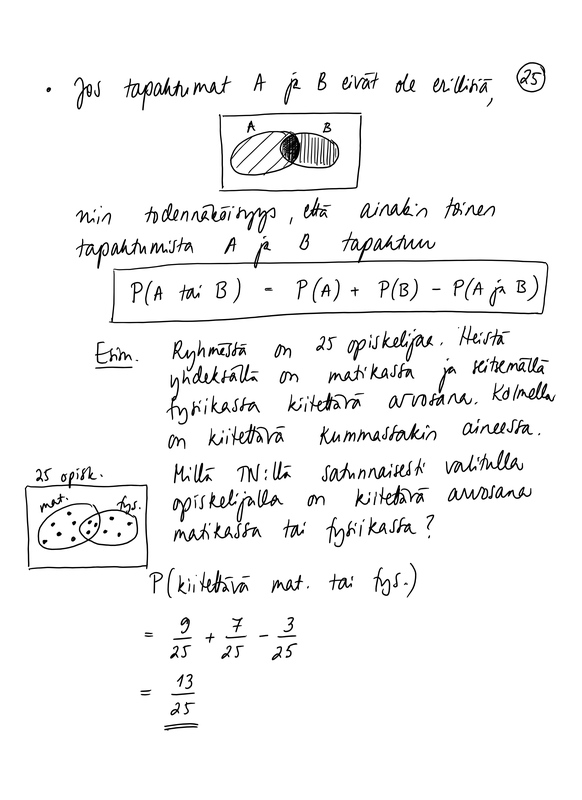 • Jos tapahtumat A ja B eivät ole erillisiä, 25
A B
niin todennäköisyys, että ainakin toinen
tapahtumista A ja B tapahtuu
P(A tai B) = P(A) + P(B) - P(A ja B)
Esim. Ryhmässä on 25 opiskelijaa. Heistä
yhdeksällä on matikassa ja seitsemällä
fysiikassa kiitettävä arvosana. Kolmella
on kiitettävä kummassakin aineessa.
Millä TN:llä satunnaisesti valitulla
opiskelijalla on kiitettävä arvosana
matikassa tai fysiikassa?
25 opisk.
mat. fys.
P(kiitettävä mat. tai fys.)
= 9/25 + 7/25 - 3/25
= 13/25